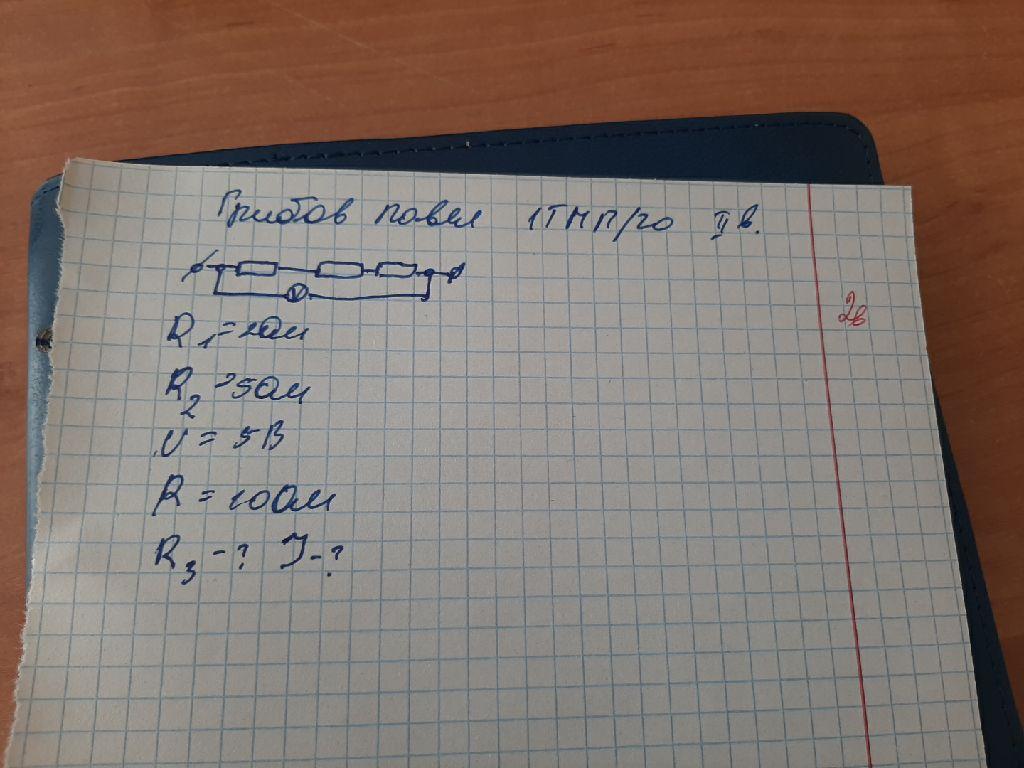 Грибов Павел 1ТМП/20 II в.
V
2в
R₁ = 2Ом
R₂ = 5Ом
U = 5В
R = 10Ом
R₃ - ? I - ?